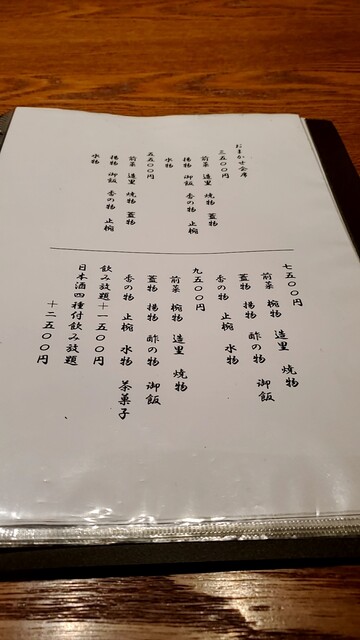 おまかせ会席
三五〇〇円
前菜 造里 焼物 蓋物
揚物 御飯 香の物 止椀
水物
五五〇〇円
前菜 造里 焼物 蓋物
揚物 御飯 香の物 止椀
水物
七五〇〇円
前菜 椀物 造里 焼物
蓋物 揚物 酢の物 御飯
香の物 止椀 水物
九五〇〇円
前菜 椀物 造里 焼物
蓋物 揚物 酢の物 御飯
香の物 止椀 水物 茶菓子
飲み放題+一五〇〇円
日本酒四種付飲み放題
+二五〇〇円